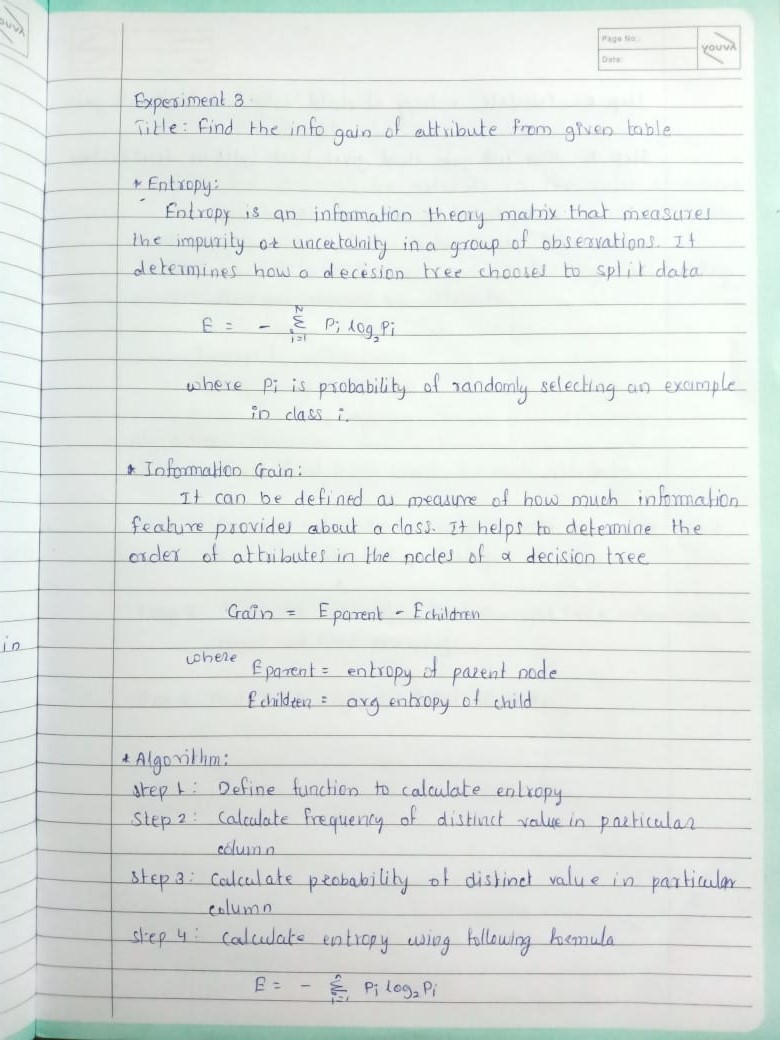 Page No.:
Date:
YOUVA
Experiment 3
Title: Find the info gain of attribute from given table
* Entropy:
Entropy is an information theory matrix that measures
the impurity or uncertainity in a group of observations. It
determines how a decesion tree chooses to split data
E = - N Σ i=1 Pi log2 Pi
where Pi is probability of randomly selecting an example
in class i.
* Information Gain:
It can be defined as measure of how much information
feature provides about a class. It helps to determine the
order of attributes in the nodes of a decision tree
Gain = Eparent - Echildren
where Eparent = entropy of parent node
Echildren = avg entropy of child
* Algorithm:
Step 1: Define function to calculate entropy
Step 2: Calculate frequency of distinct value in particular
column
Step 3: Calculate probability of distinct value in particular
column
Step 4: Calculate entropy using following formula
E = - n Σ i=1 Pi log2 Pi
in